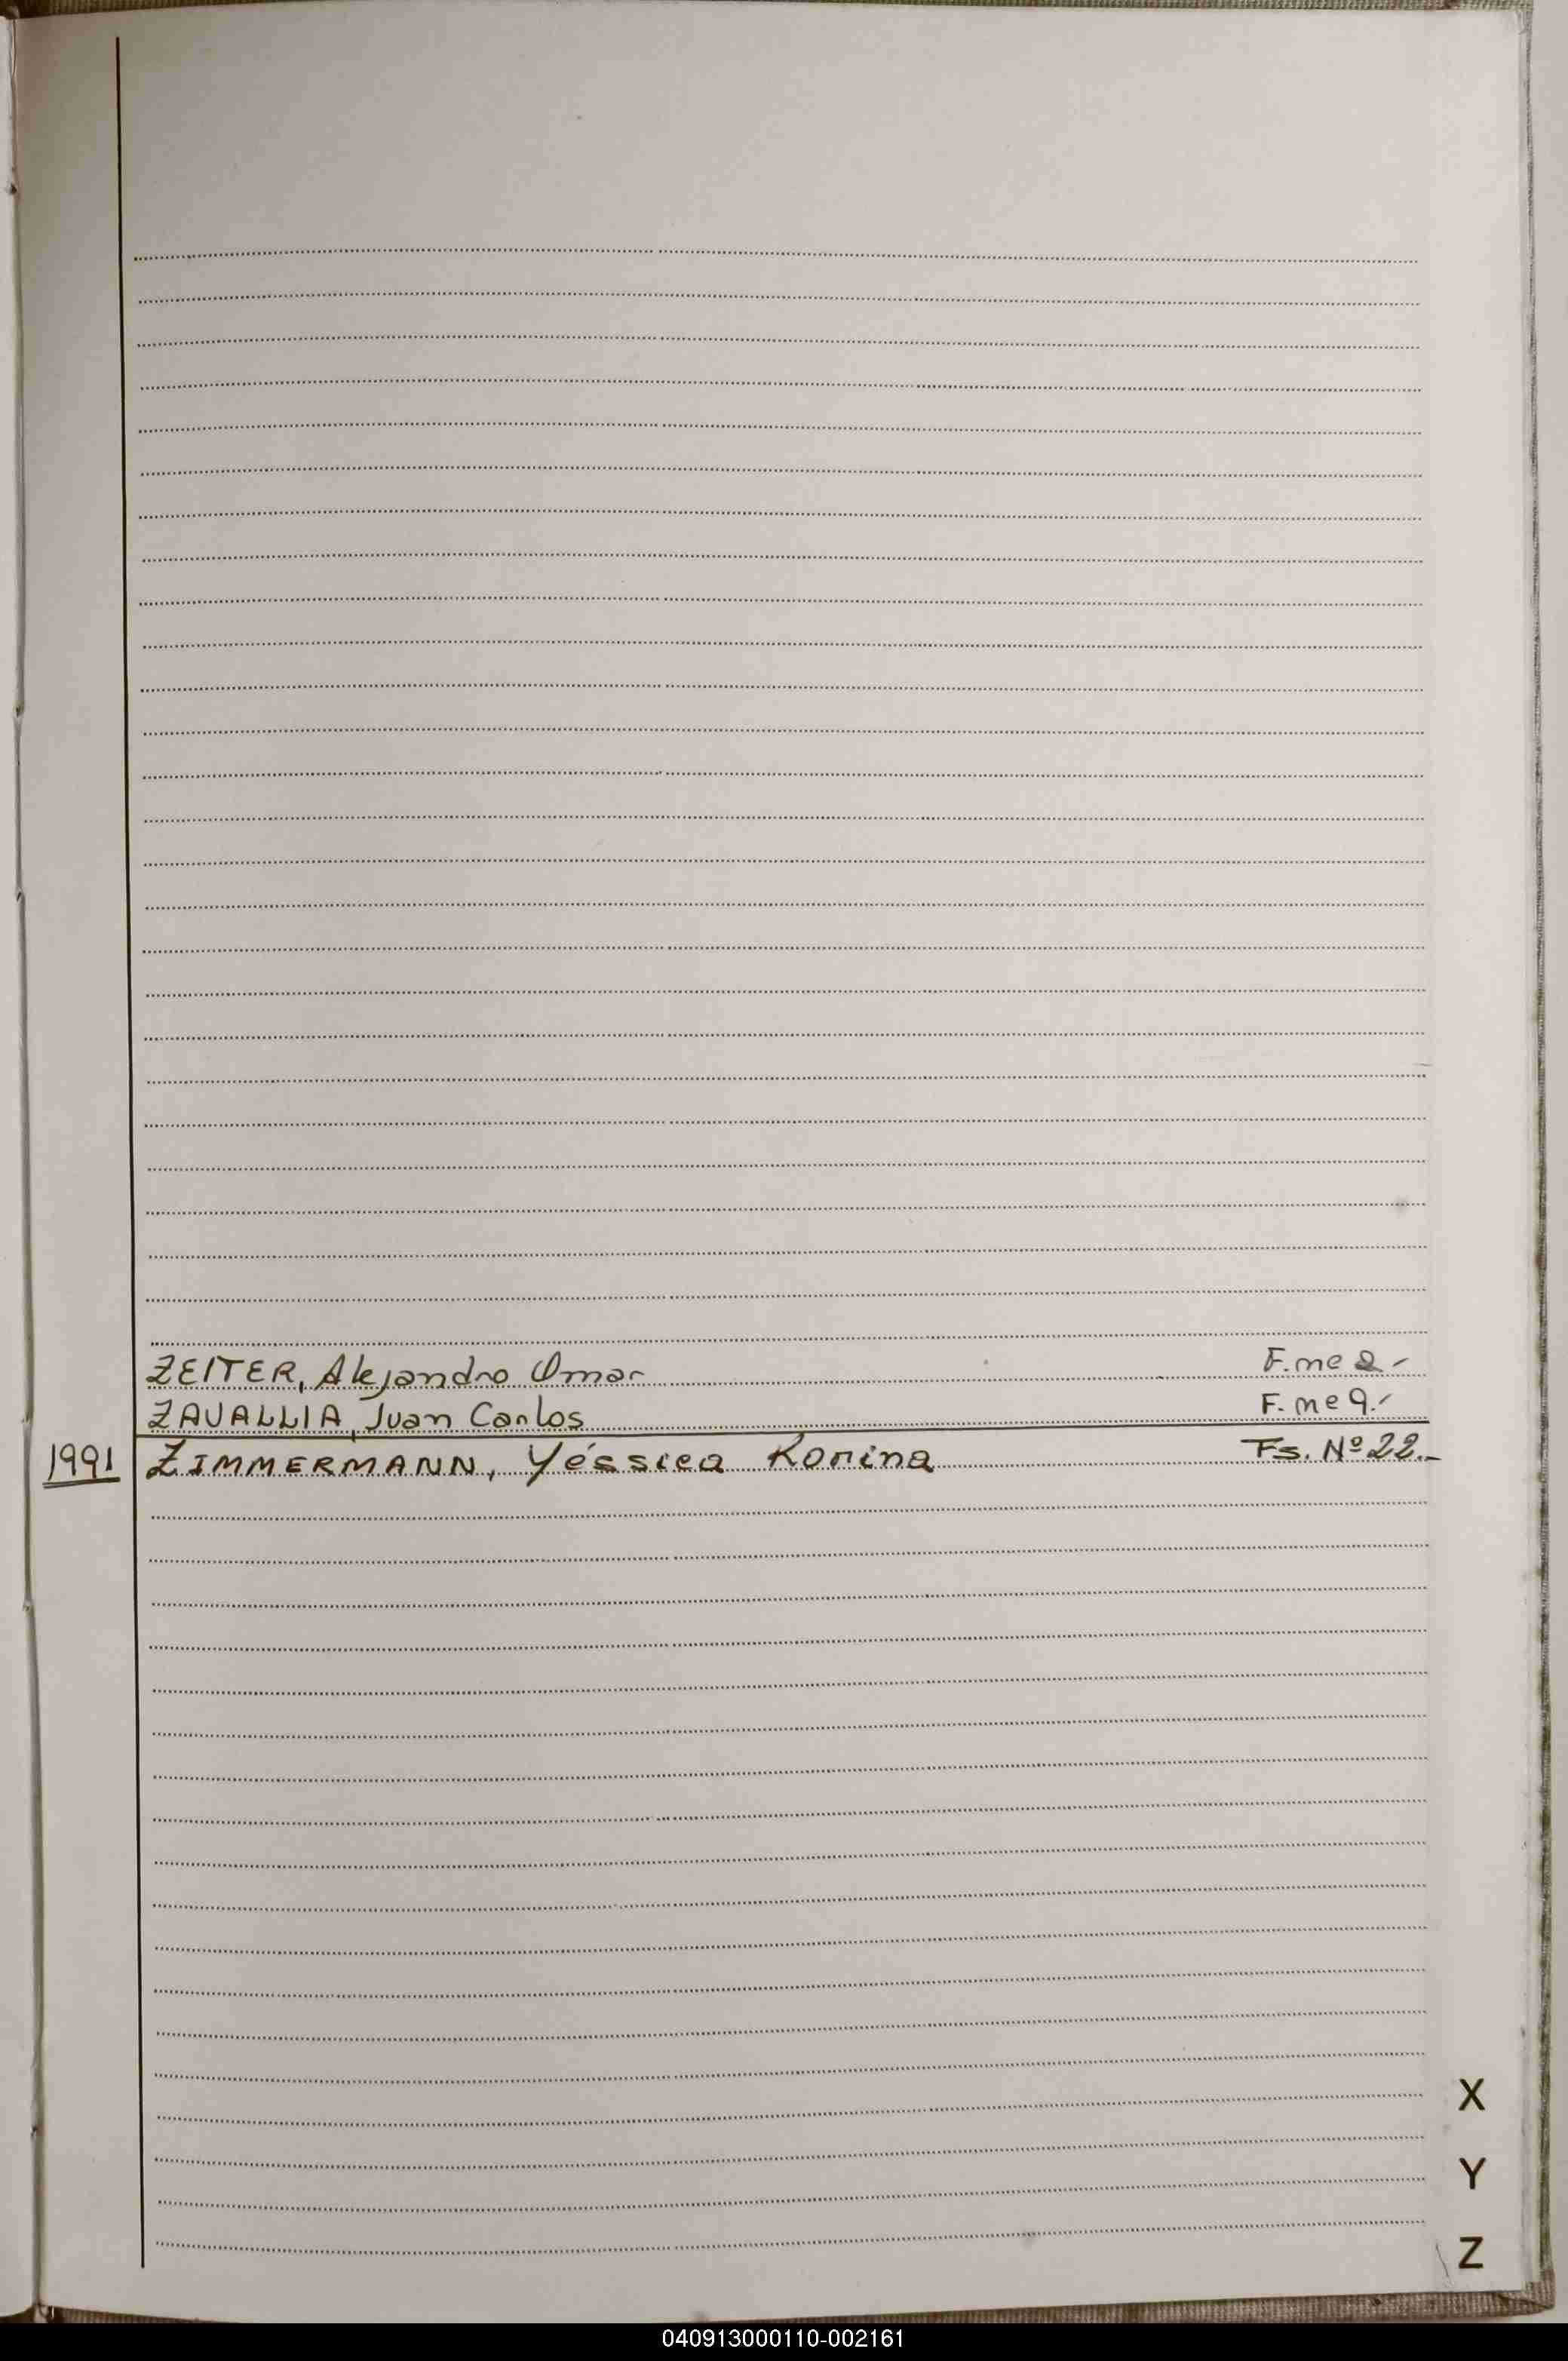 ZEITER, Alejandro Omar F. nº 2.-
ZAVALLIA, Juan Carlos F. nº 9.-
1991 ZIMMERMANN, Yéssica Korina Fs. Nº 22.-
X
Y
Z
040913000110-002161